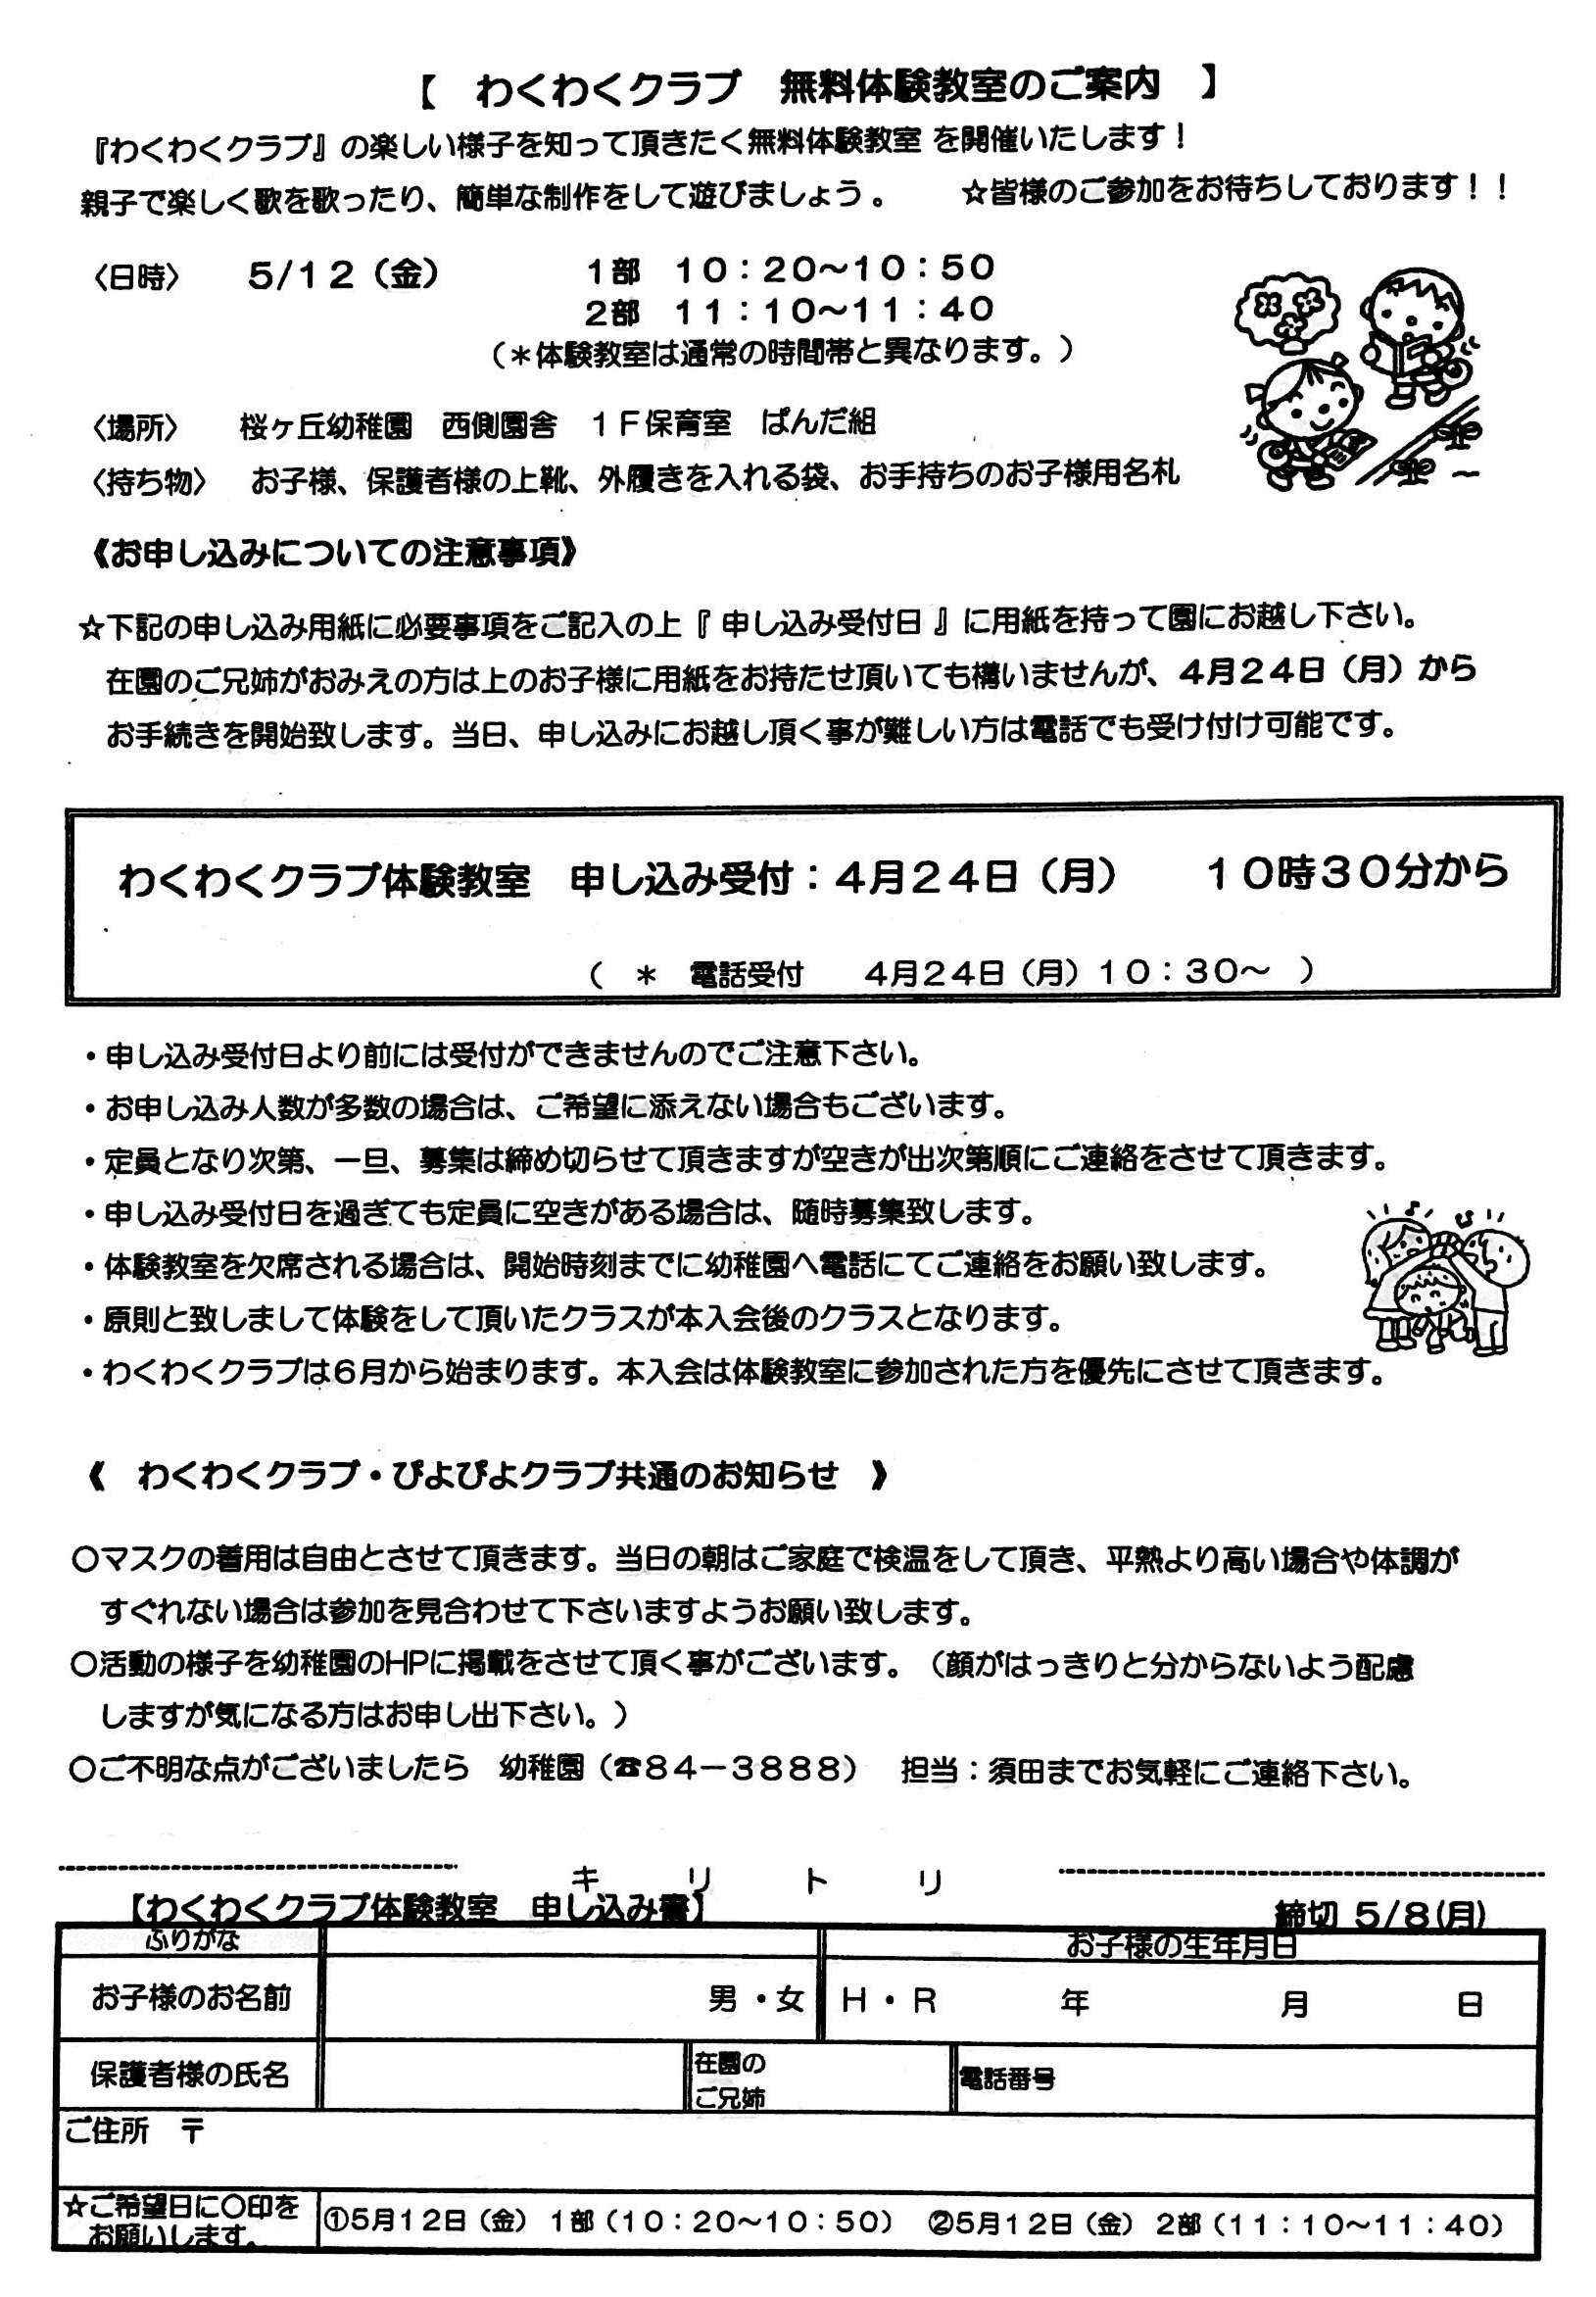 【　わくわくクラブ　無料体験教室のご案内　】
『わくわくクラブ』の楽しい様子を知って頂きたく無料体験教室 を開催いたします！
親子で楽しく歌を歌ったり、簡単な制作をして遊びましょう 。　　☆皆様のご参加をお待ちしております！！
〈日時〉　５/１２（金）　　１部　１０：２０～１０：５０
２部　１１：１０～１１：４０
（＊体験教室は通常の時間帯と異なります。）
〈場所〉　桜ヶ丘幼稚園　西側園舎　１Ｆ保育室　ぱんだ組
〈持ち物〉　お子様、保護者様の上靴、外履きを入れる袋、お手持ちのお子様用名札
《お申し込みについての注意事項》
☆下記の申し込み用紙に必要事項をご記入の上『 申し込み受付日 』に用紙を持って園にお越し下さい。
在園のご兄姉がおみえの方は上のお子様に用紙をお持たせ頂いても構いませんが、４月２４日（月）から
お手続きを開始致します。当日、申し込みにお越し頂く事が難しい方は電話でも受け付け可能です。
わくわくクラブ体験教室　申し込み受付：４月２４日（月）　　１０時３０分から
（　＊　電話受付　　４月２４日（月）１０：３０～　）
・申し込み受付日より前には受付ができませんのでご注意下さい。
・お申し込み人数が多数の場合は、ご希望に添えない場合もございます。
・定員となり次第、一旦、募集は締め切らせて頂きますが空きが出次第順にご連絡をさせて頂きます。
・申し込み受付日を過ぎても定員に空きがある場合は、随時募集致します。
・体験教室を欠席される場合は、開始時刻までに幼稚園へ電話にてご連絡をお願い致します。
・原則と致しまして体験をして頂いたクラスが本入会後のクラスとなります。
・わくわくクラブは６月から始まります。本入会は体験教室に参加された方を優先にさせて頂きます。
《　わくわくクラブ・ぴよぴよクラブ共通のお知らせ　》
○マスクの着用は自由とさせて頂きます。当日の朝はご家庭で検温をして頂き、平熱より高い場合や体調が
すぐれない場合は参加を見合わせて下さいますようお願い致します。
○活動の様子を幼稚園のHPに掲載をさせて頂く事がございます。（顔がはっきりと分からないよう配慮
しますが気になる方はお申し出下さい。）
○ご不明な点がございましたら　幼稚園（☎８４－３８８８）　担当：須田までお気軽にご連絡下さい。
キ　リ　ト　リ
【わくわくクラブ体験教室　申し込み書】　　締切 ５/８(月)
ふりがな　　お子様の生年月日
お子様のお名前　　男・女　Ｈ・Ｒ　　年　　月　　日
保護者様の氏名　　在園の　　電話番号
ご兄姉
ご住所　〒
☆ご希望日に○印を　①５月１２日（金）１部（１０：２０～１０：５０）　②５月１２日（金）２部（１１：１０～１１：４０）
お願いします。